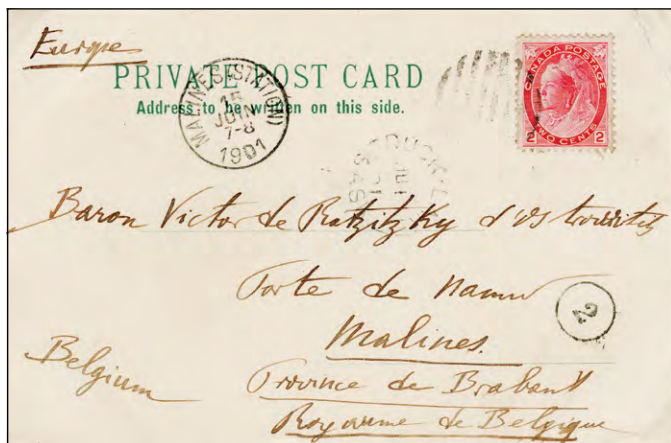 Europe
PRIVATE POST CARD
Address to be written on this side.
MALINES (STATION)
15
JUIN
7-8
1901
CANADA POSTAGE
2 TWO CENTS 2
DUCK L
SAS
Baron Victor de Ratzitzky d'Ostrowitz
Porte de Namur
2
Malines.
Belgium
Province de Brabant
Royaume de Belgique